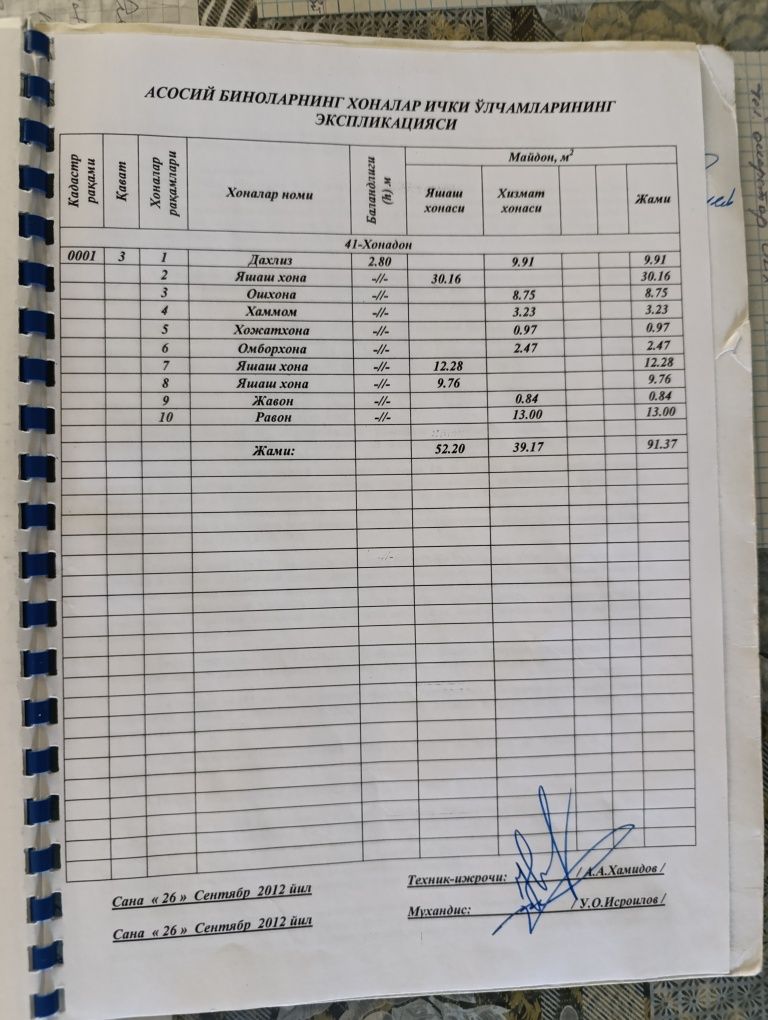 АСОСИЙ БИНОЛАРНИНГ ХОНАЛАР ИЧКИ ЎЛЧАМЛАРИНИНГ
ЭКСПЛИКАЦИЯСИ
Кадастр рақами Қават Хоналар рақамлари Хоналар номи Баландлиги (h) м Майдон, м²
Яшаш хонаси Хизмат хонаси Жами
41-Хонадон
0001 3 1 Дахлиз 2.80 9.91 9.91
2 Яшаш хона -//- 30.16 30.16
3 Ошхона -//- 8.75 8.75
4 Хаммом -//- 3.23 3.23
5 Хожатхона -//- 0.97 0.97
6 Омборхона -//- 2.47 2.47
7 Яшаш хона -//- 12.28 12.28
8 Яшаш хона -//- 9.76 9.76
9 Жавон -//- 0.84 0.84
10 Равон -//- 13.00 13.00
Жами: 52.20 39.17 91.37
Сана « 26 » Сентябр 2012 йил Техник-ижрочи: / А.А.Хамидов /
Сана « 26 » Сентябр 2012 йил Мухандис: / У.О.Исроилов /